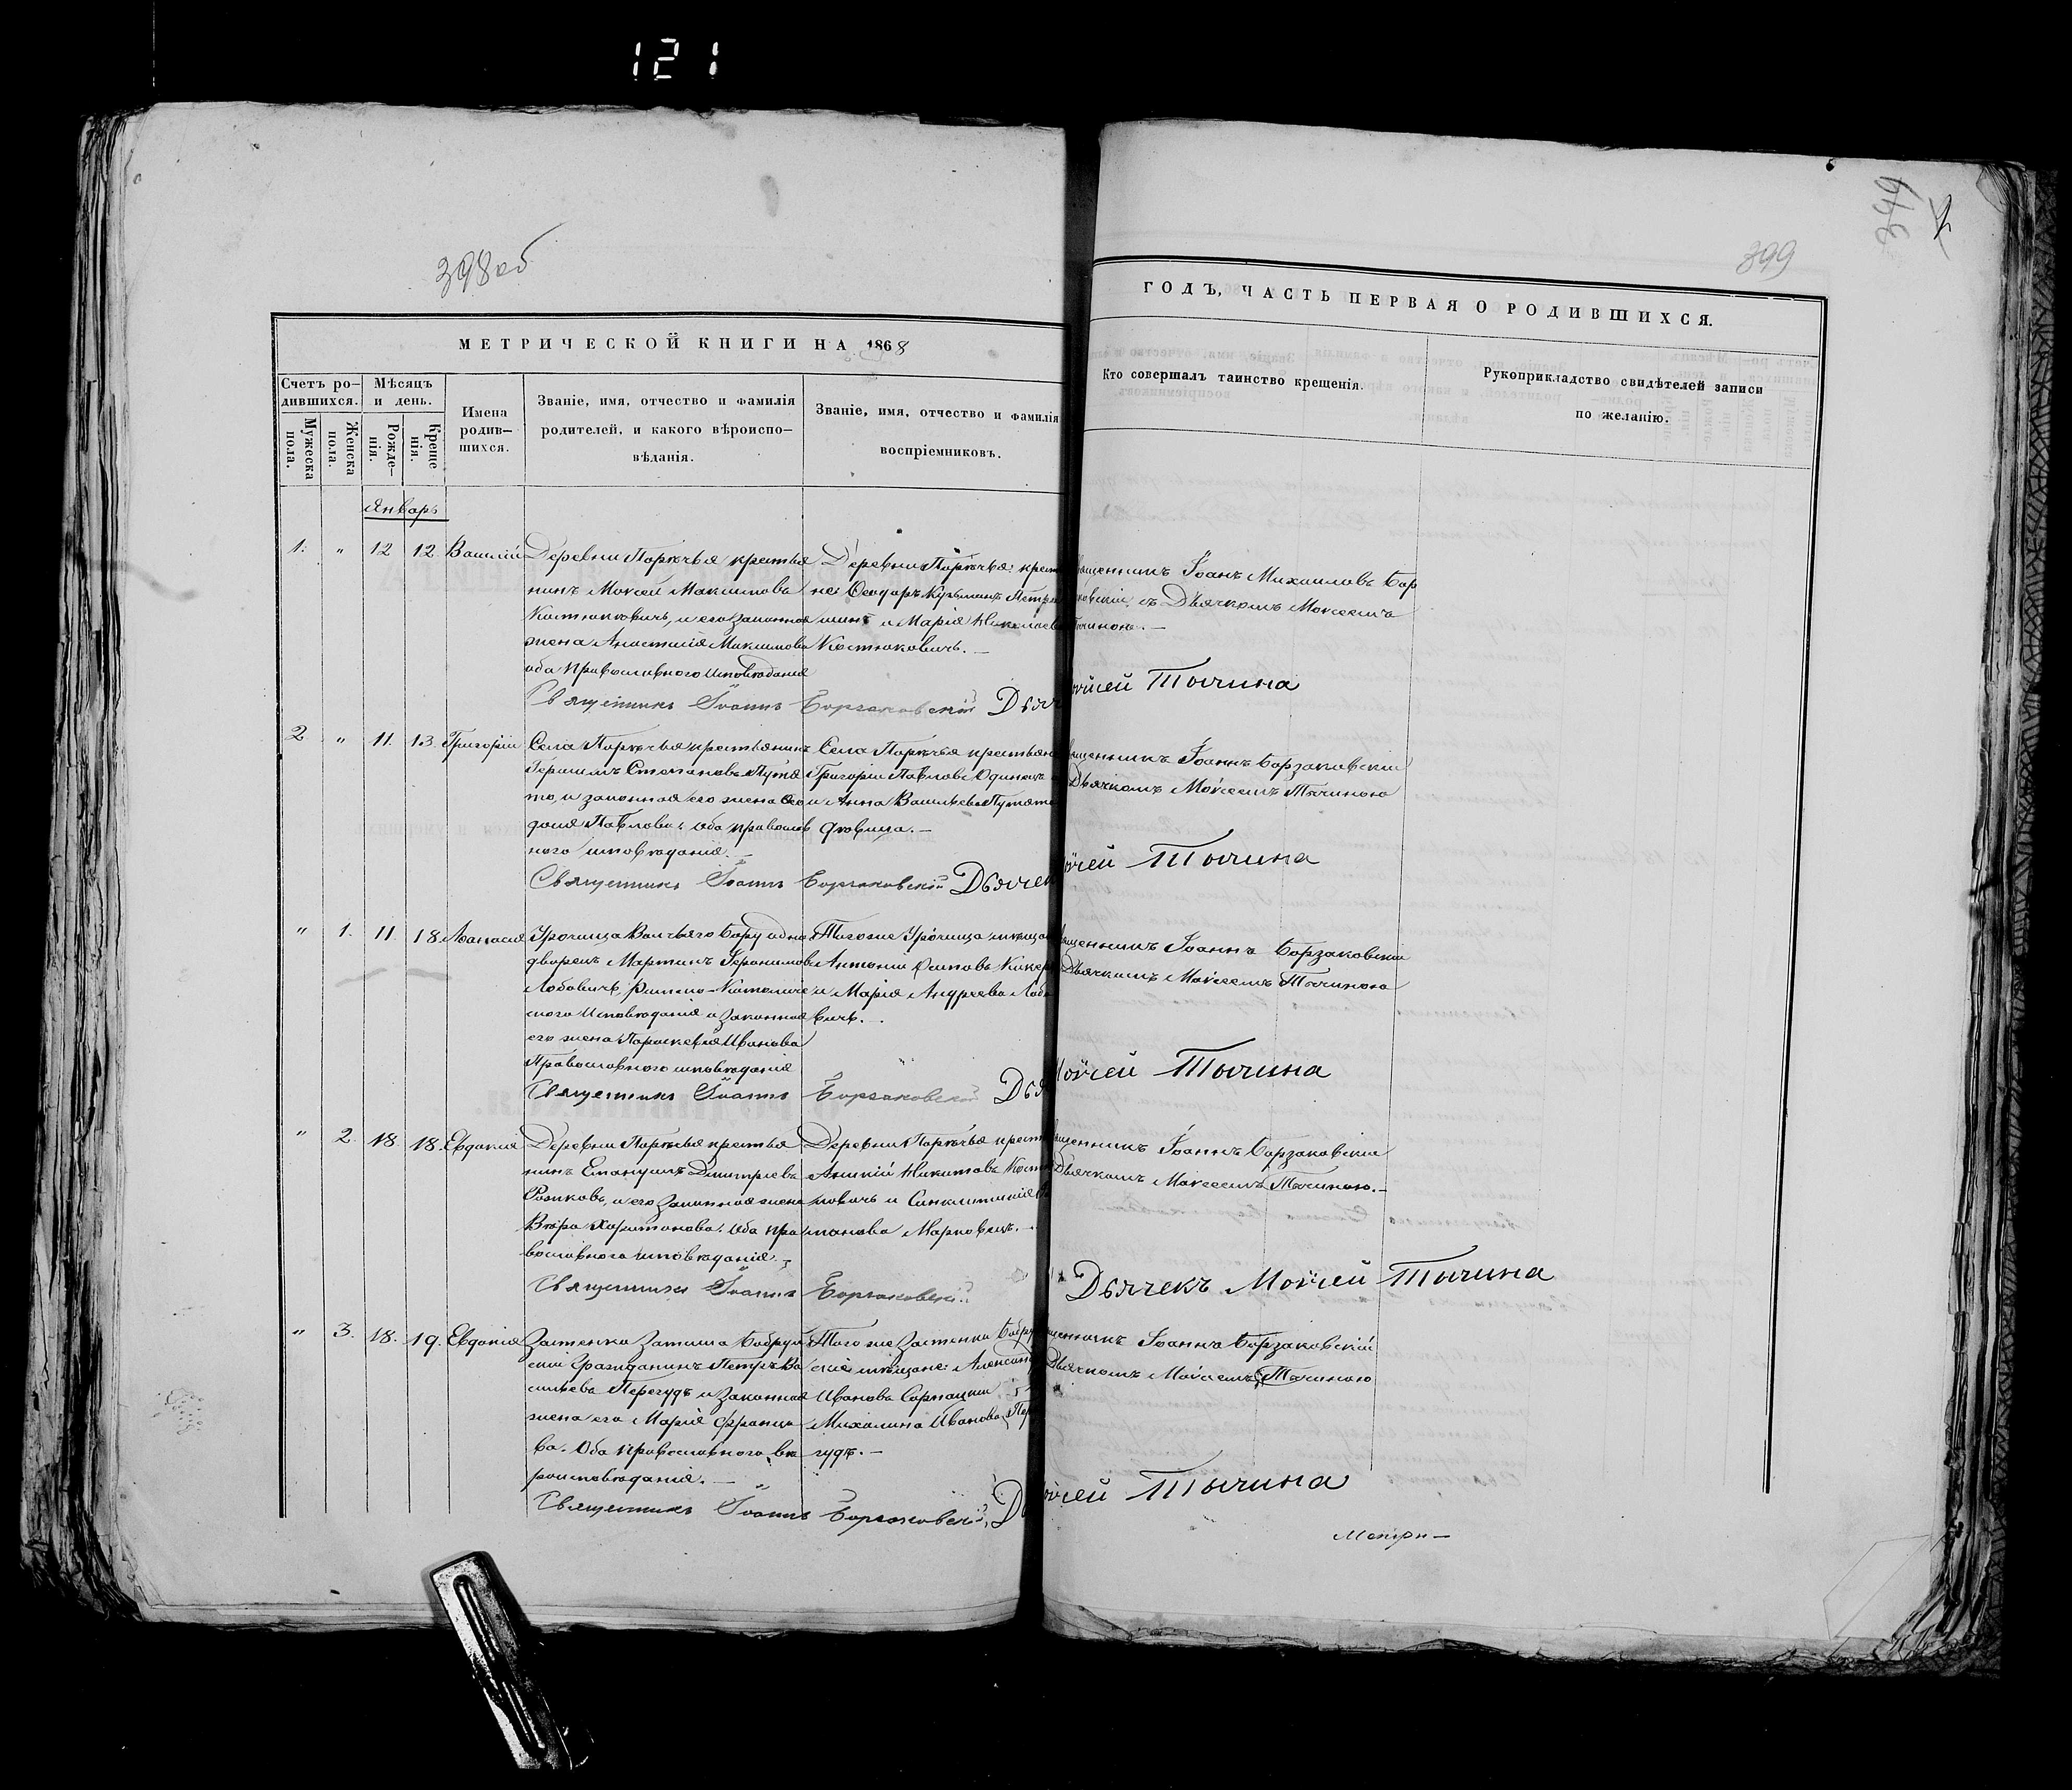 121
398об
399
МЕТРИЧЕСКОЙ КНИГИ НА 1868
ГОДЪ, ЧАСТЬ ПЕРВАЯ О РОДИВШИХСЯ.
Счетъ ро-
дившихся.
Мужеска
пола.
Женска
пола.
Мѣсяцъ
и день.
Рожде-
нія.
Креще
нія.
Имена
родив-
шихся.
Званіе, имя, отчество и фамилія
родителей, и какого вѣроиспо-
вѣданія.
Званіе, имя, отчество и фамилія
воспріемниковъ.
Кто совершалъ таинство крещенія.
Рукоприкладство свидѣтелей записи
по желанію.
Январь
1. " 12 12. Василій
Деревни Порѣчья крестья
нинъ Моисей Максимовъ
Костюковичъ, и его законная
жена Анастасія Максимова
оба православного исповѣданія
Деревни Порѣчья: крест
не: Ѳеодоръ Кузьминъ
и Марія Николаева
Костюковичъ. —
священникъ Іоанъ Михаиловъ Бор
ковскій, съ Дьячкомъ Моисеемъ
Тычиною. —
Священникъ Іоаннъ Борзаковскій Дьяч
Моѵсей Тычина
2 " 11. 13. Григорій
Села Порѣчья крестьянинъ
Герасимъ Степановъ Путя
то, и законная его жена Ѳео
дося Павлова: оба православ
ного исповѣданія. —
Села Порѣчья крестьяне
Григорій Павловъ Одинецъ
и Анна Васильева Путято
—
священникъ Іоаннъ Борзаковскій
Дьячкомъ Моѵсеемъ Тычиною
Священникъ Іоаннъ Борзаковскій Дьячек
Моѵсей Тычина
" 1. 11. 18. Аѳанасія
Урочища Волчьяго Бору одно
дворецъ Мартинъ Іеронимовъ
Лобовичъ Римско-Католиче
ского исповѣданія и законная
его жена Параскевія Иванова
Православного исповѣданія
Тогоже Урочища мѣщане
Антоній Осиповъ
и Марія Андреева Лобо
вичъ. .
священникъ Іоаннъ Борзаковскій
Дьячкомъ Моѵсеемъ Тычиною
Священникъ Іоаннъ Борзаковскій Дья
Моѵсей Тычина
" 2. 18. 18. Евдокія
Деревни Порѣчья крестья
нинъ Емануилъ Димитріевъ
Рожковъ, и его законная жена
Вѣра Харитонова: оба пра
вославного исповѣданія. —
Деревни Порѣчья крест
Никитовъ Костю
ковичъ и Синклитикія
Марковичъ. —
священникъ Іоаннъ Борзаковскій
Дьячкомъ Моѵсеемъ Тычиною. —
Священникъ Іоаннъ Борзаковскій
Дьячекъ Моѵсей Тычина
" 3. 18. 19. Евдокія
Застенка Затишья Бобруй
скій Гражданинъ Петръ Ва
сильевъ Перегудъ и законная
жена его Марія Францо
ва. Оба православного вѣ
роисповѣданія. —
Того же Застенка Бобруй
скіе мѣщане: Александръ
Ивановъ
Михалина Иванова Пере
гудъ. —
священникъ Іоаннъ Борзаковскій
Дьячкомъ Моѵсеемъ Тычиною
Священникъ Іоаннъ Борзаковскій, Д
Моѵсей Тычина
Метри—